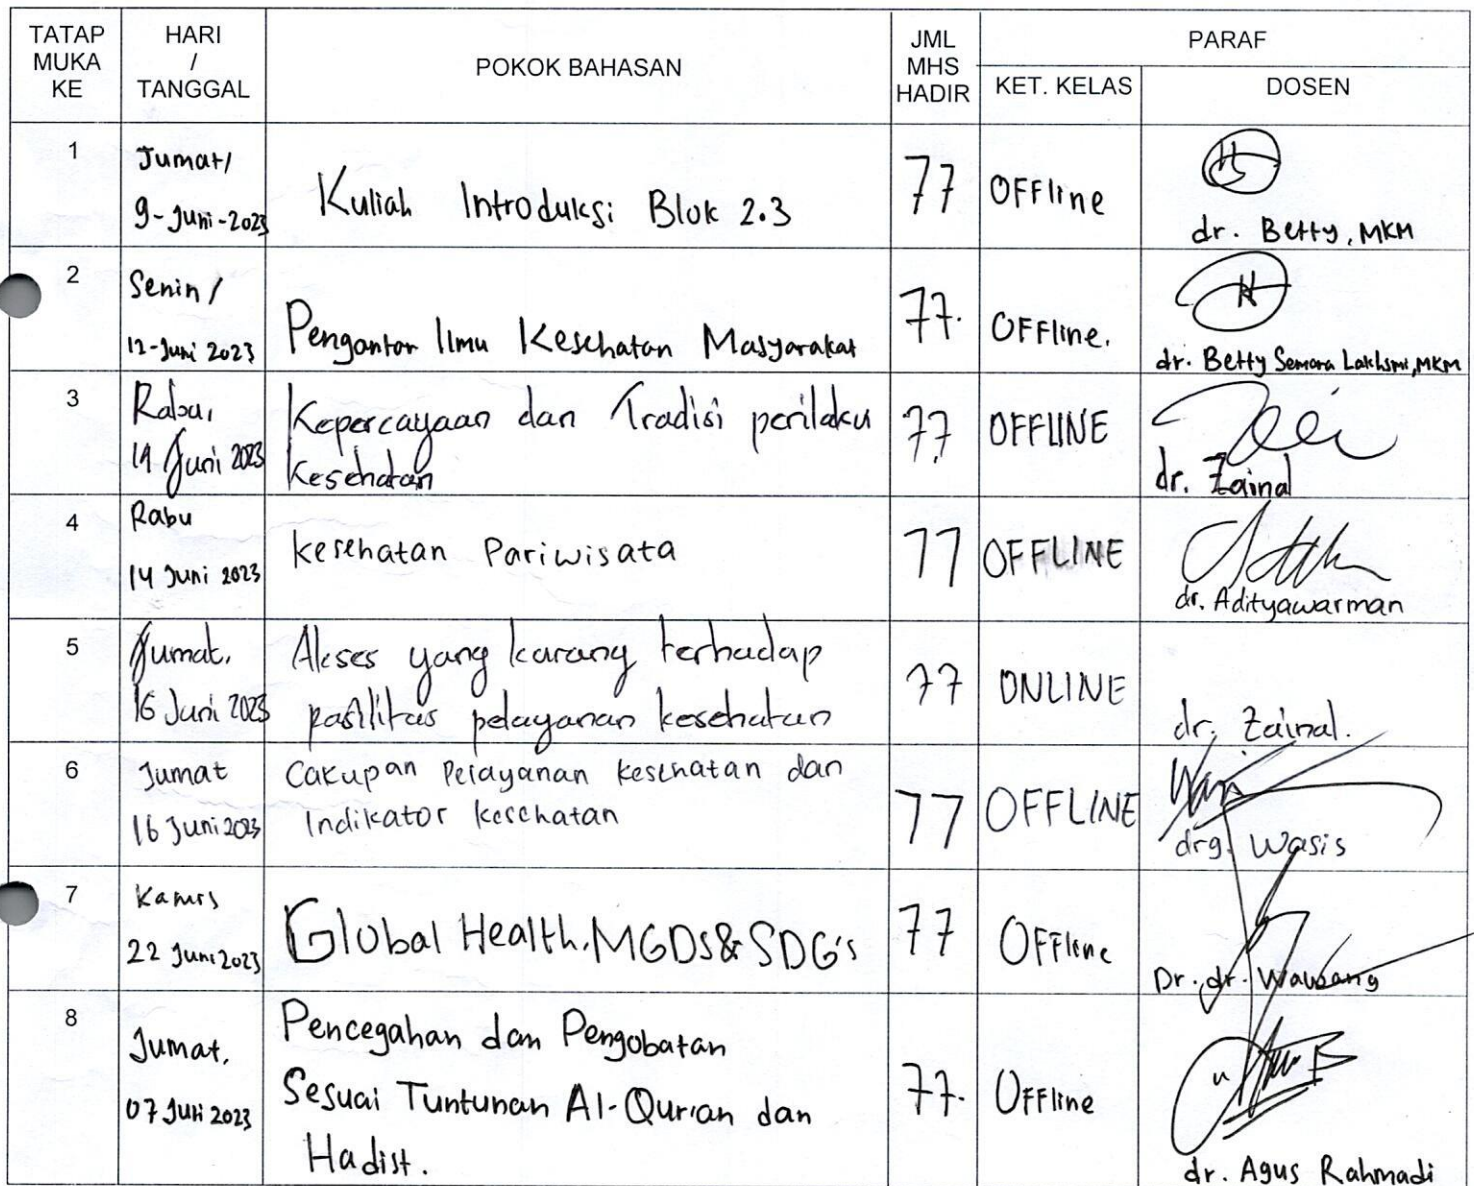 TATAP MUKA KE
HARI / TANGGAL
POKOK BAHASAN
JML MHS HADIR
PARAF
KET. KELAS
DOSEN
1
Jumat/
9-Juni-2023
Kuliah Introduksi Blok 2.3
77
OFFline
dr. Betty, MKM
2
Senin /
12-Juni 2023
Pengantar Ilmu Kesehatan Masyarakat
77.
OFFline.
dr. Betty Semara Lakhsmi, MKM
3
Rabu,
14 Juni 2023
Kepercayaan dan Tradisi perilaku
kesehatan
77
OFFLINE
dr. Zainal
4
Rabu
14 Juni 2023
kesehatan Pariwisata
77
OFFLINE
dr. Adityawarman
5
Jumat,
16 Juni 2023
Akses yang karang terhadap
pasilitas pelayanan kesehatan
77
ONLINE
dr. Zainal.
6
Jumat
16 Juni 2023
Cakupan Pelayanan kesehatan dan
Indikator kesehatan
77
OFFLINE
drg. Wasis
7
Kamis
22 Juni 2023
Global Health, MGDs & SDG's
77
OFFline
Dr. dr.
8
Jumat,
07 Juli 2023
Pencegahan dan Pengobatan
Sesuai Tuntunan Al-Qur'an dan
Hadist.
77.
OFFline
dr. Agus Rahmadi